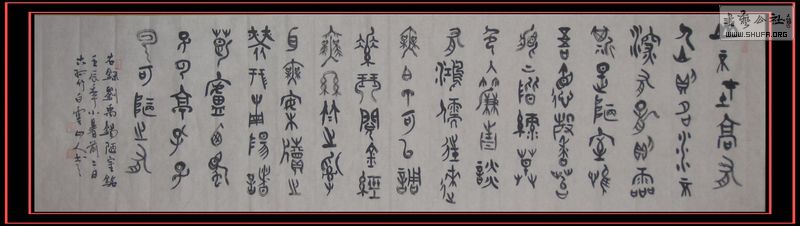 书艺公社
WWW.SHUFA.ORG
山不在高有
仙則名水不在
深有龍則靈
斯是陋室惟
吾惪馨苔
痕上階綠草
色入簾青談
有鴻儒往來
無白丁可以調
素琴閱金經
無絲竹之亂
耳無案牘之
勞形南陽諸
葛廬西蜀
子雲亭孔子
云何陋之有
右録劉禹錫陋室銘
壬辰年小暑前二日
白雲山人